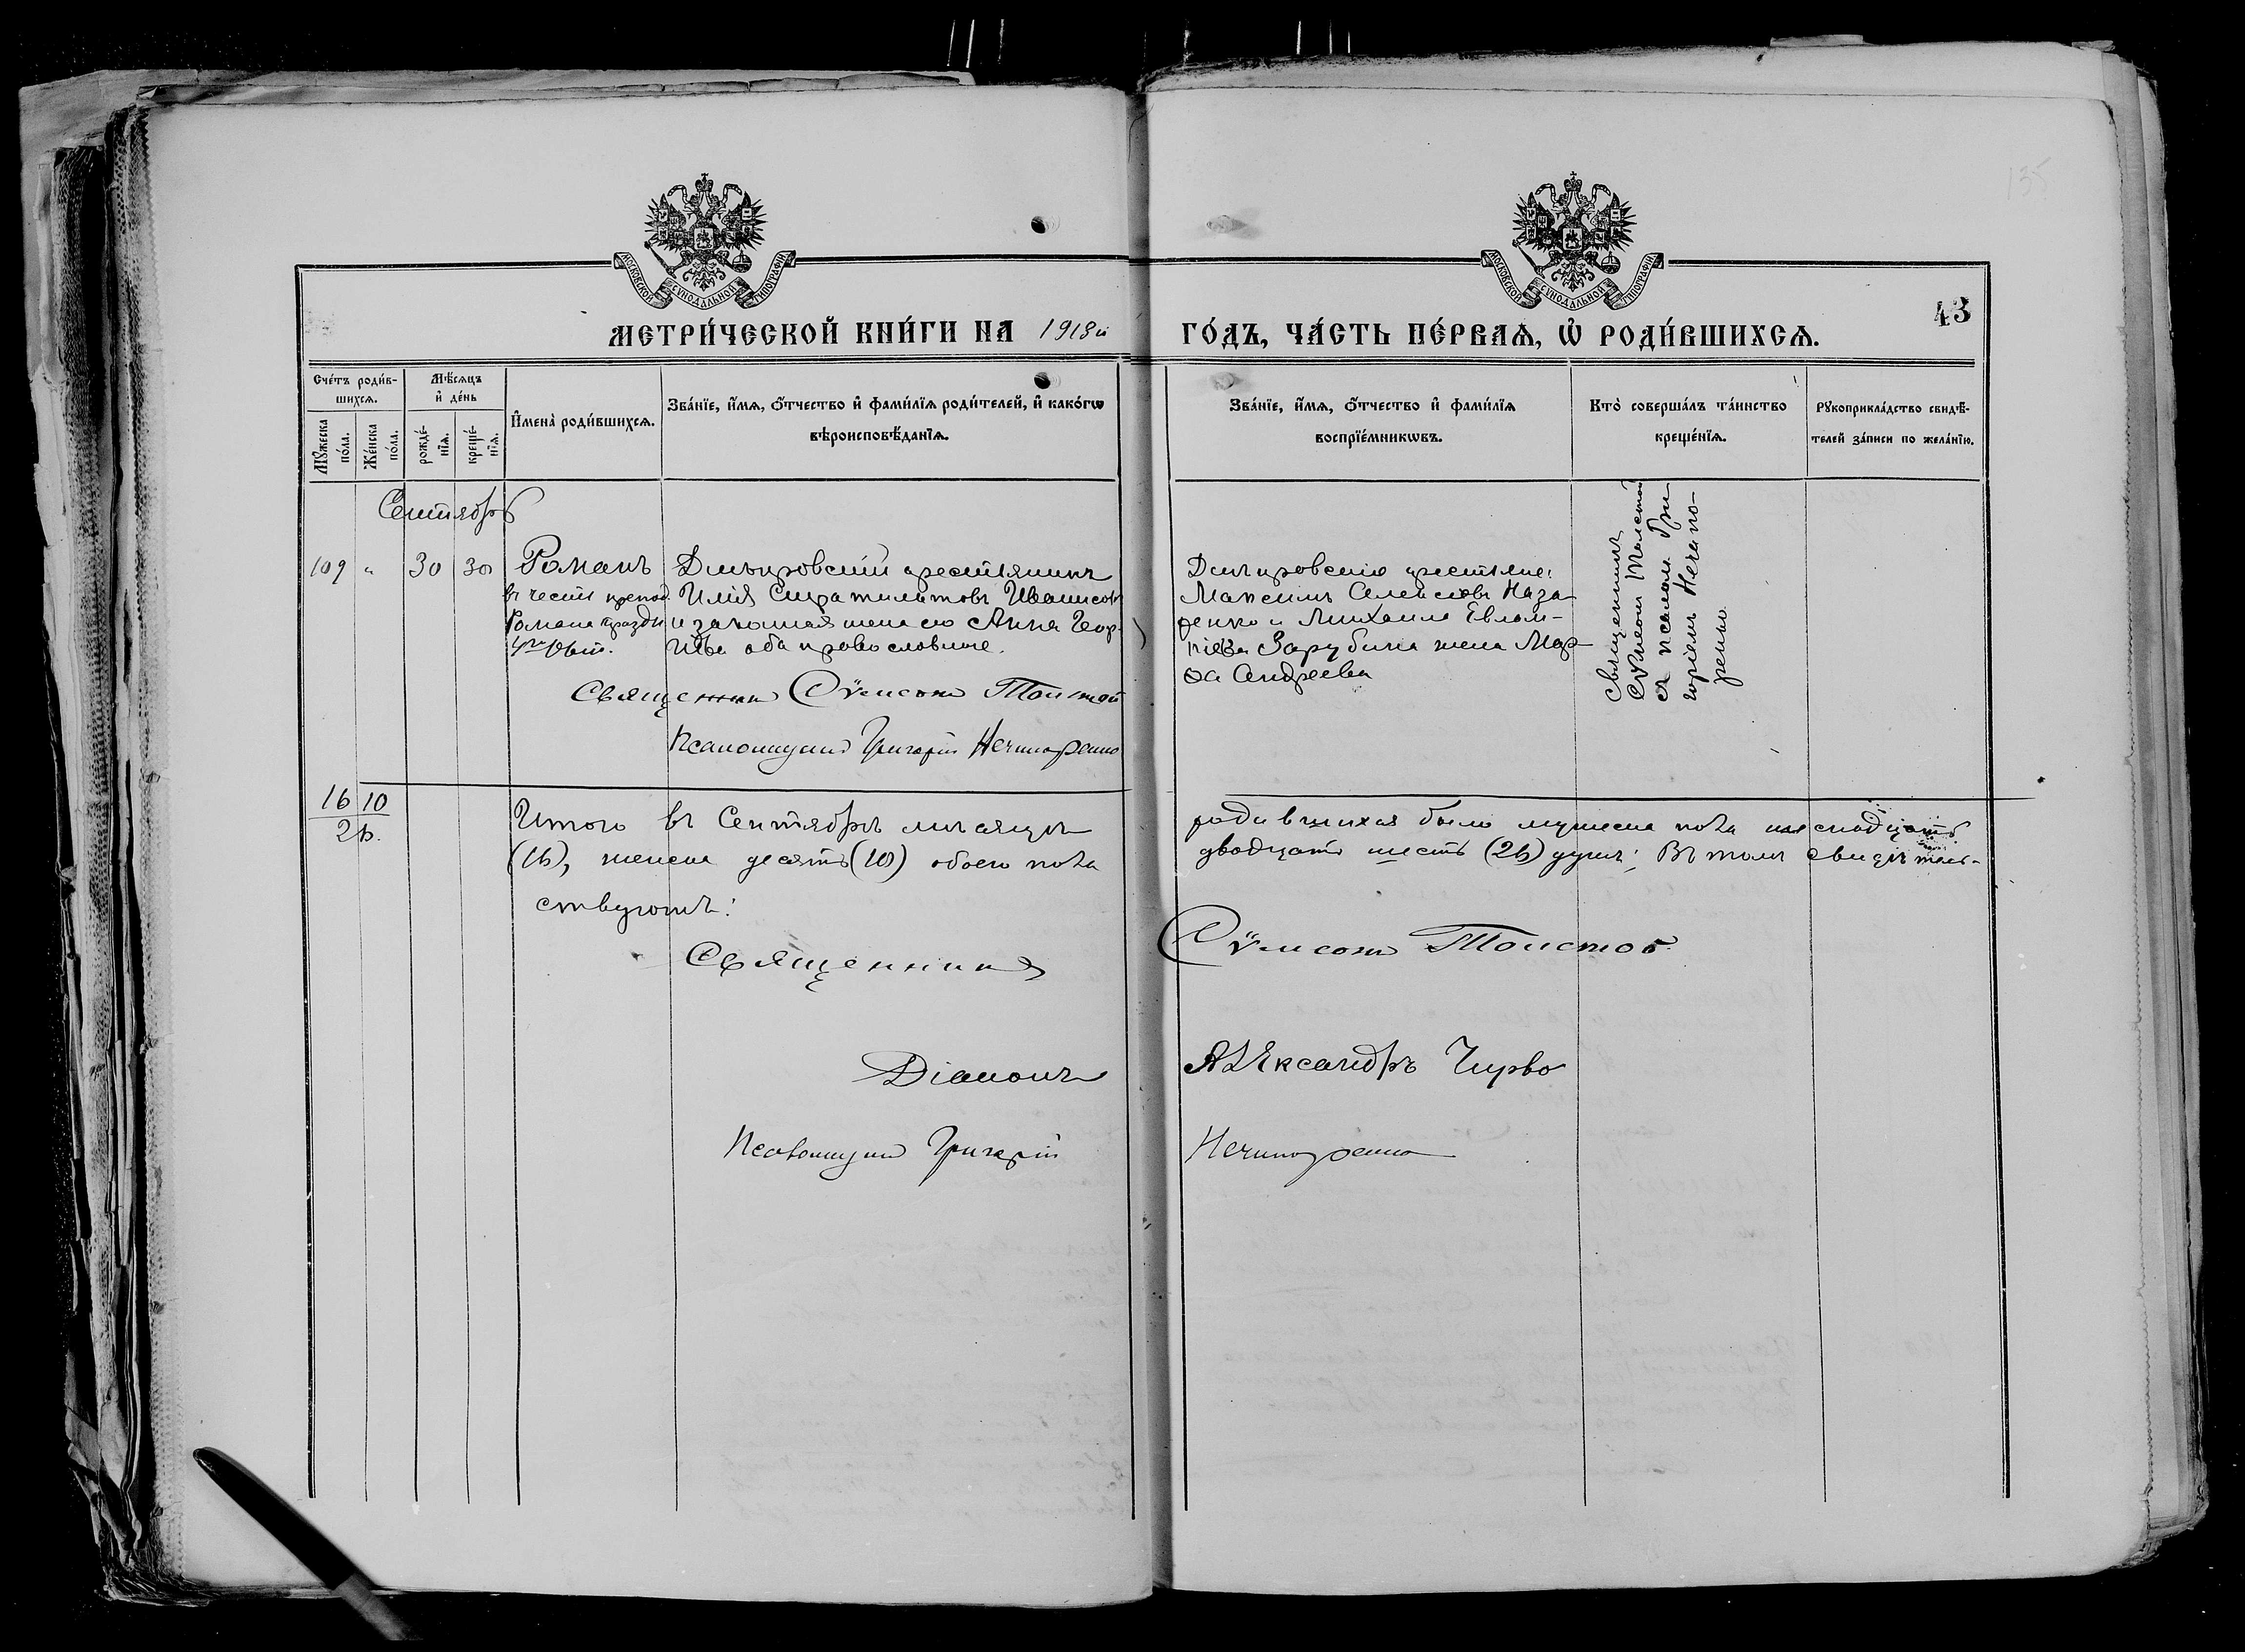 135
МОСКОВСКОЙ СѴНОДАЛЬНОЙ ТИПОГРАФІИ
МОСКОВСКОЙ СѴНОДАЛЬНОЙ ТИПОГРАФІИ
43
МЕТРИ́ЧЕСКОЙ КНИ́ГИ НА 1918й ГО́ДЪ, ЧА́СТЬ ПЕ́РВАѦ, Ѡ РОДИ́ВШИХСѦ.
Сче́тъ роди́в-
шихсѧ.
Мѣ́сѧцъ
и҆ де́нь
Мꙋ́жеска по́ла.
Же́нска по́ла.
рожде́-
нїѧ.
креще́-
нїѧ.
И҆мена̀ роди́вшихсѧ.
Зва́нїе, и҆́мѧ, ѻ҆́тчество и҆ фами́лїѧ роди́телей, и҆ како́гѡ
вѣроисповѣ́данїѧ.
Зва́нїе, и҆́мѧ, ѻ҆́тчество и҆ фами́лїѧ
воспрїе́мникѡвъ.
Кто̀ соверша́лъ та́инство
креще́нїѧ.
Рꙋкоприкла́дство свидѣ́-
телей за́писи по жела́нїю.
Сентябрь
109 " 30 30 Романъ
въ честь препод.
Романа празdн
Днѣпровскій крестьянинъ
Илія Стратилатовъ
и законная жена его Анна Геор-
оба православные.
Священник Сѵмеонъ Толстой
Псаломщикъ Григорій Нечипоренко
Днѣпровскіе крестьяне:
Максимъ Алексіевъ Наза-
ренко и Михаила Евлам-
піева Зарубина жена Мар-
ѳа Андреева
Священникъ
Сѵмеонъ Толстой
съ псалом. Гри-
горіемъ Нечипо-
ренко
16 10
26.
Итого въ Сентябрѣ мѣсяцѣ родившихся было мужеска пола шеснадцать
(16), женска десять (10) обоего пола двадцать шесть (26) душъ: Въ томъ свидѣтель-
ствуютъ:
Священникъ Сѵмеонъ Толстой
Діаконъ Александръ Чирво
Псаломщикъ Григорій Нечипоренко